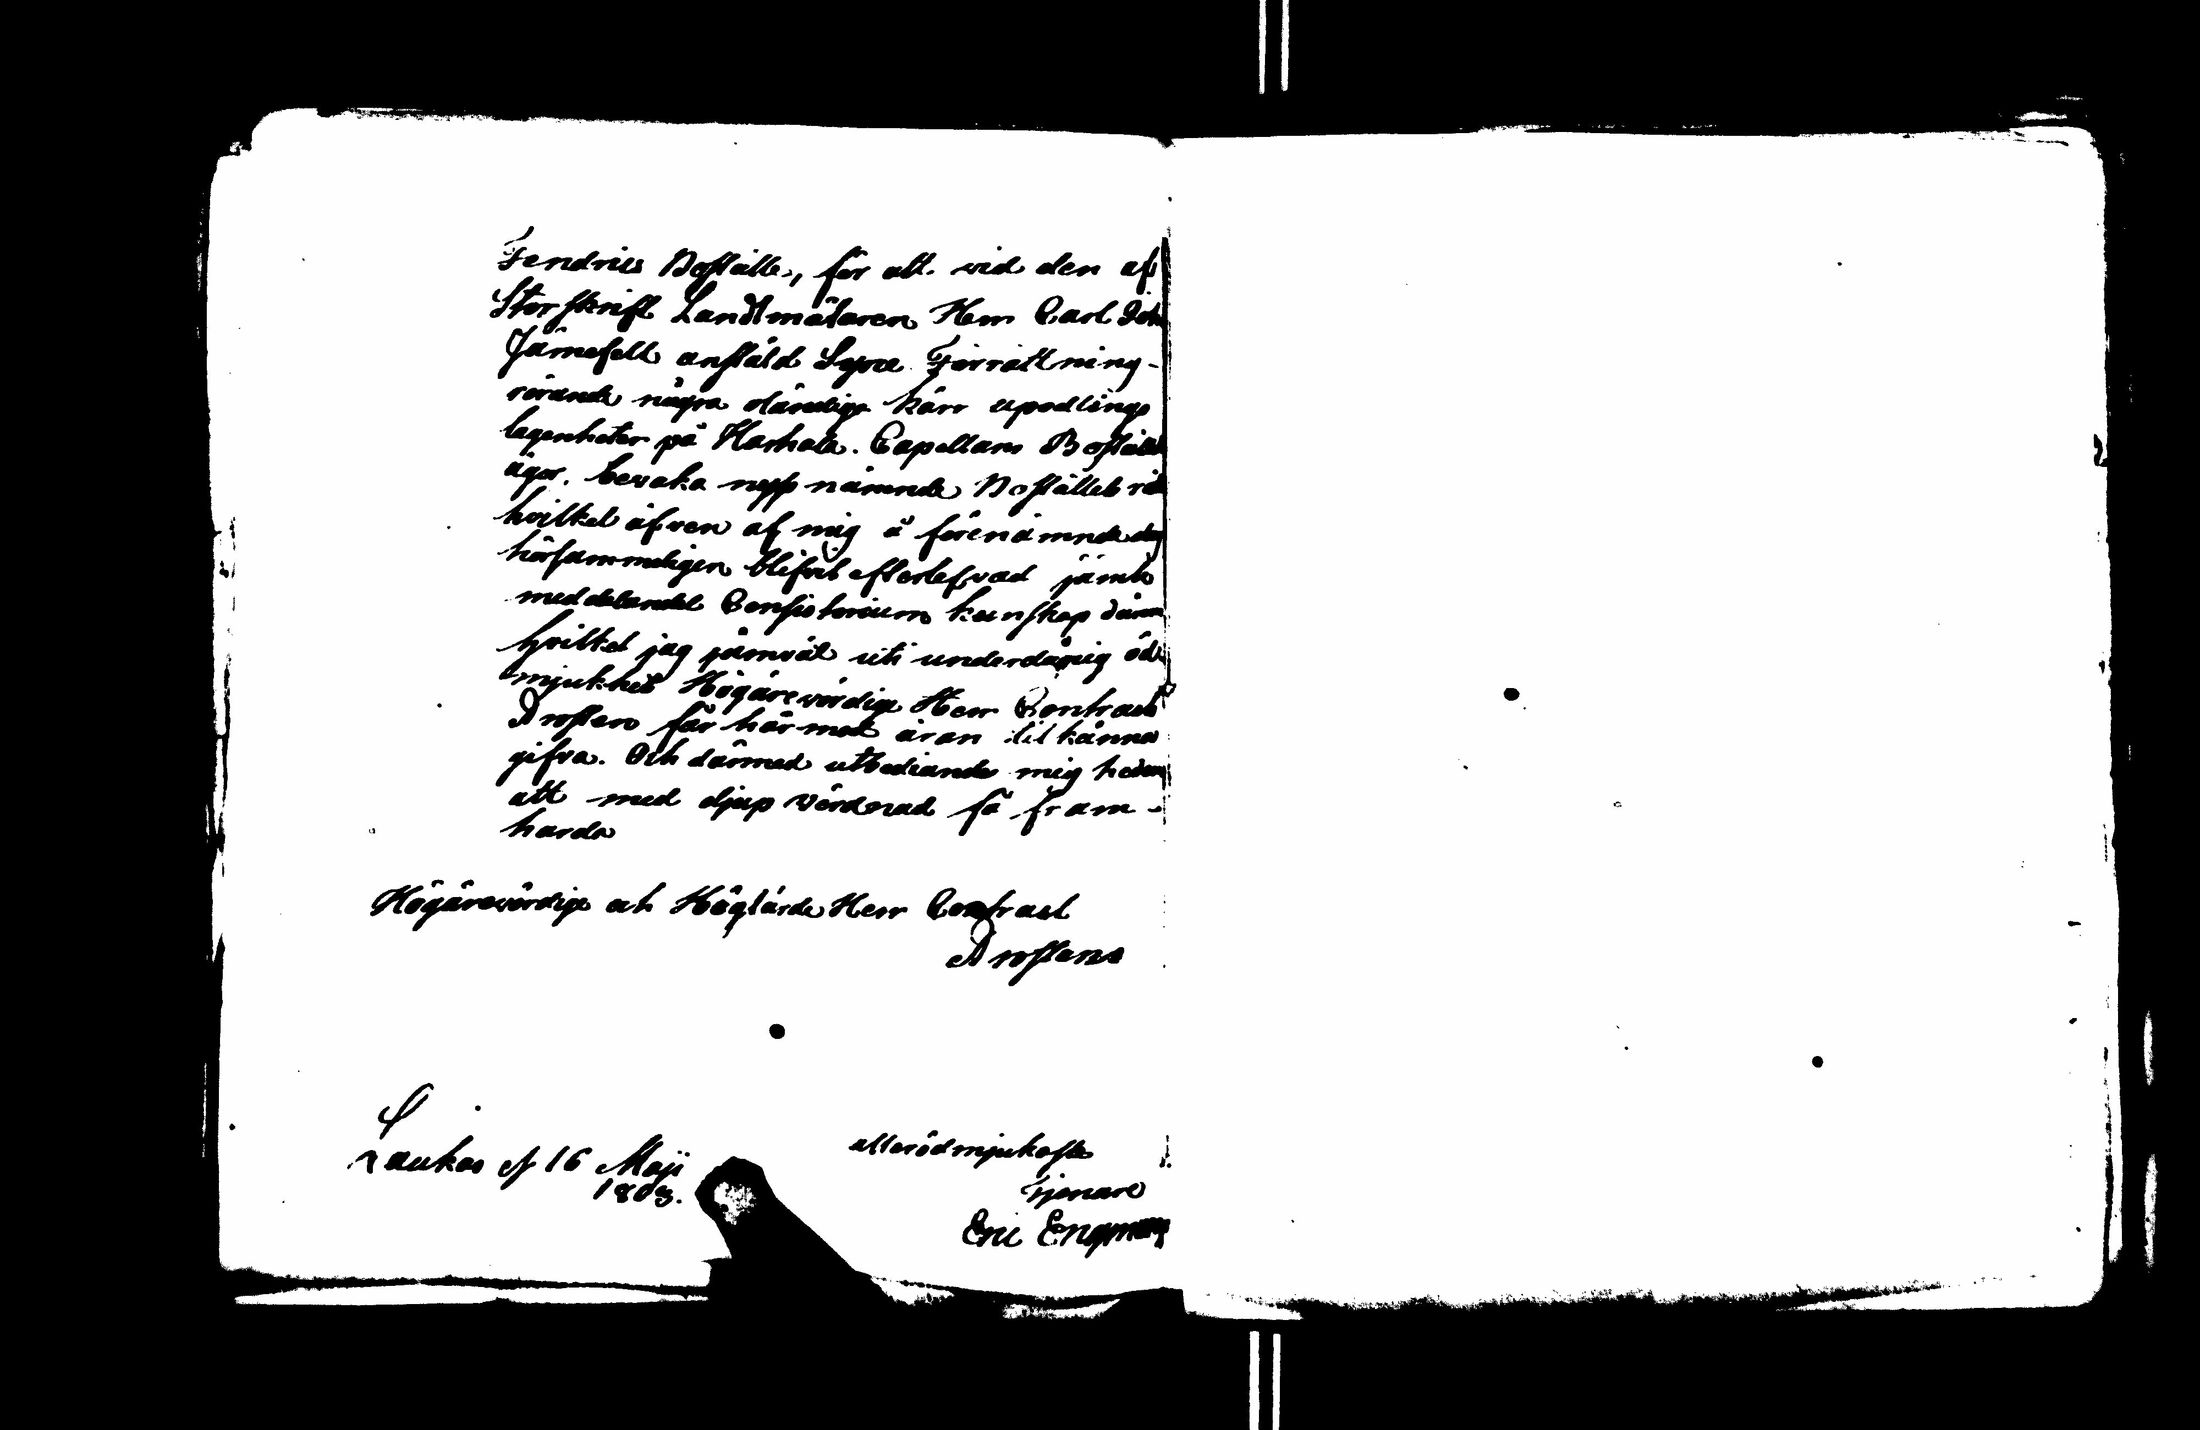 Fendrics Boställe, för att vid den af
Storskrift Landtmätaren Herr Carl Joh
Järnefelt anstäld Syne Förrättning-
rörande några oländiga kärr upodlings
lägenheter på Harhala Capellans Boställs
ägor, bevaka nyss nämnde Boställets rät
hvilket äfven af mig å förenämnde dag
hörsammeligen blifvit efterlefvad jämte
meddelandet Consistorium kunskap därom
hvilket jag jämväl uti underdånig öd
mjukhet Högärevördige Herr Contract
Prosten får härmed äran til känna
gifva. Och därmed utbediande mig heder
att med djup vördnad få fram-
härda
Högärevördige och Höglärde Herr Contract
Prostens
Laukas af 16 Maji
1803.
allerödmjukaste
Tjenare
Eric Engman